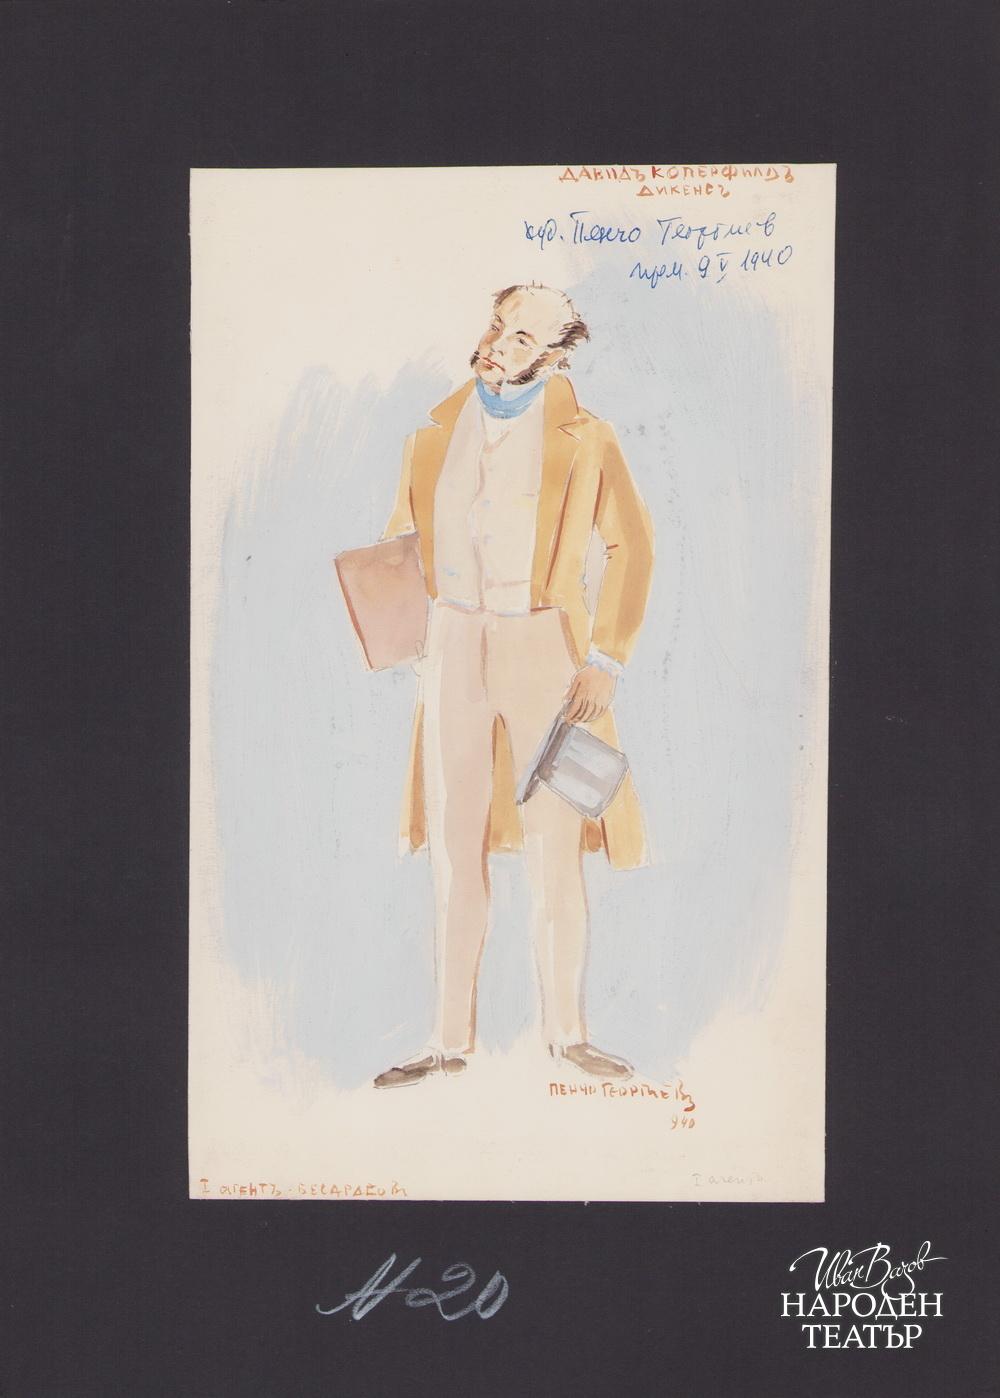 ДАВИДЪ КОПЕРФИЛДЪ
ДИКЕНСЪ
худ. Пенчо Георгиев
прем. 9 V 1940
ПЕНЧО ГЕОРГИЕВЪ
940
I агентъ - БЕСАРАБОВЪ
I агентъ
N 20
Иван Вазов
НАРОДЕН
ТЕАТЪР